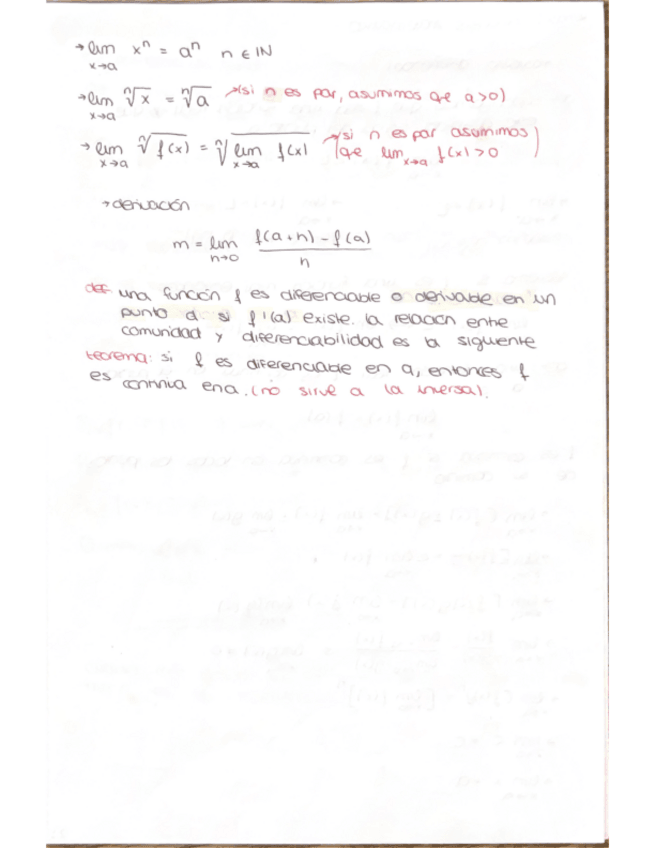 → lim x→a xⁿ = aⁿ n ∈ ℕ
→ lim x→a ⁿ√x = ⁿ√a → (si n es par, asumimos qe a>0)
→ lim x→a ⁿ√f(x) = ⁿ√lim x→a f(x) → (si n es par asumimos
qe lim x→a f(x)>0)
→ derivación
m = lim h→0 f(a+h) - f(a) / h
def una función f es diferenciable o derivable en un
punto a si f'(a) existe. la relación ente
comunidad y diferenciabilidad es la siguiente
teorema: si f es diferenciable en a, entonces f
es continua en a. (no sirve a la inversa).